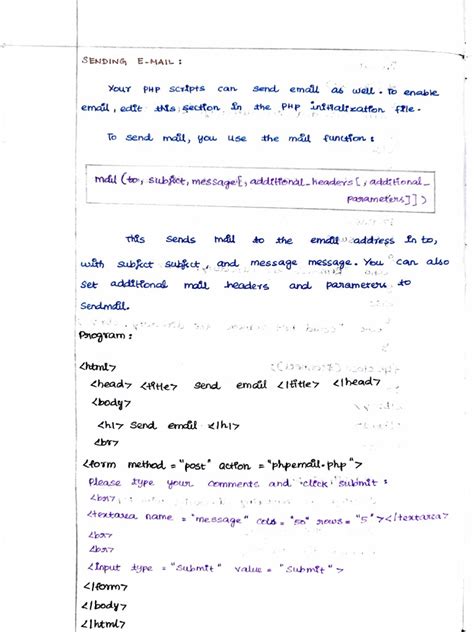 SENDING E-MAIL :
Your PHP scripts can send email as well. To enable
email, edit this section in the PHP initialization file.
To send mail, you use the mail function :
mail (to, subject, message[, additional_headers [, additional_
parameters]] )
This sends mail to the email address in to,
with subject subject, and message message. You can also
set additional mail headers and parameters to
sendmail.
Program :
<html>
<head> <title> send email </title> </head>
<body>
<h1> Send email </h1>
<br>
<form method = "post" action = "phpemail.php">
Please type your comments and click submit :
<br>
<textarea name = "message" cols = "50" rows = "5"></textarea>
<br>
<br>
<input type = "Submit" value = "Submit">
</form>
</body>
</html>